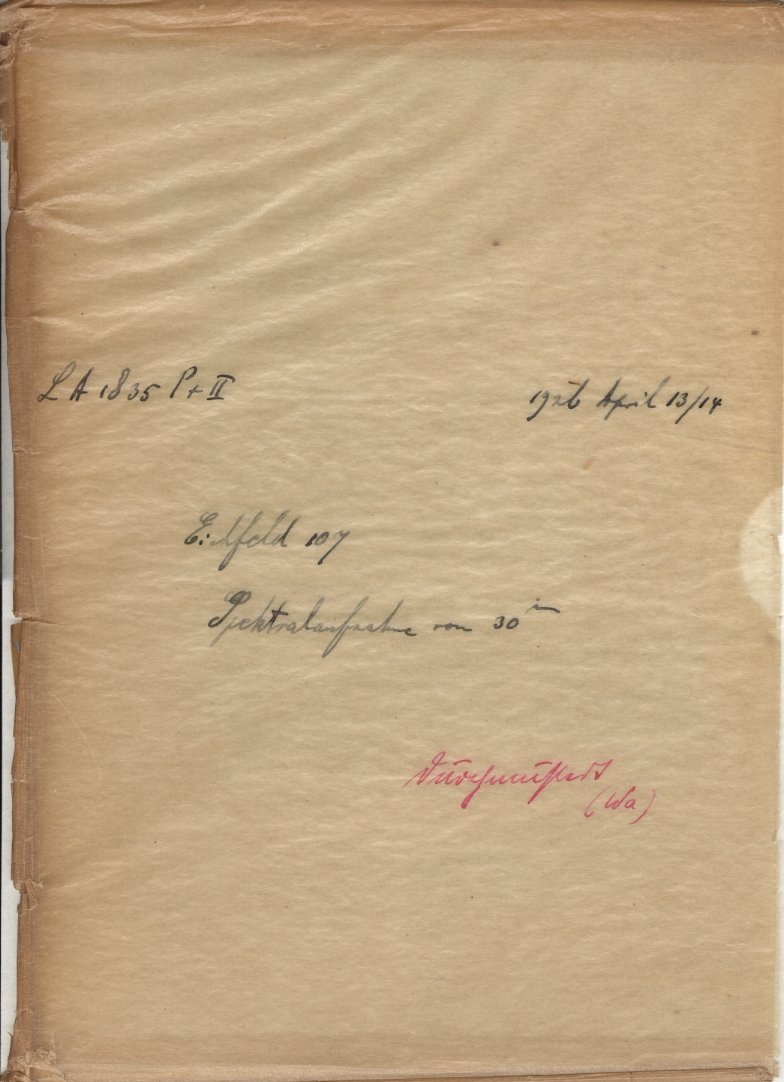 LA 1835 P+II
1926 April 13/14
Eichfeld 107
Spektralaufnahme von 30 m
durchmustert
(Wa)